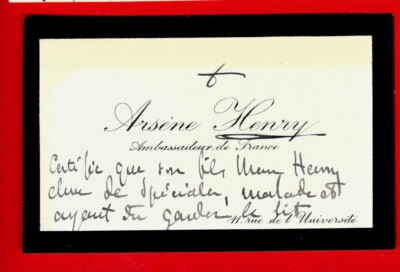 Arsène Henry
Ambassadeur de France
Certifie que son fils Henry
élève de Spéciales, malade et
ayant du garder le lit
11, rue de l'Université